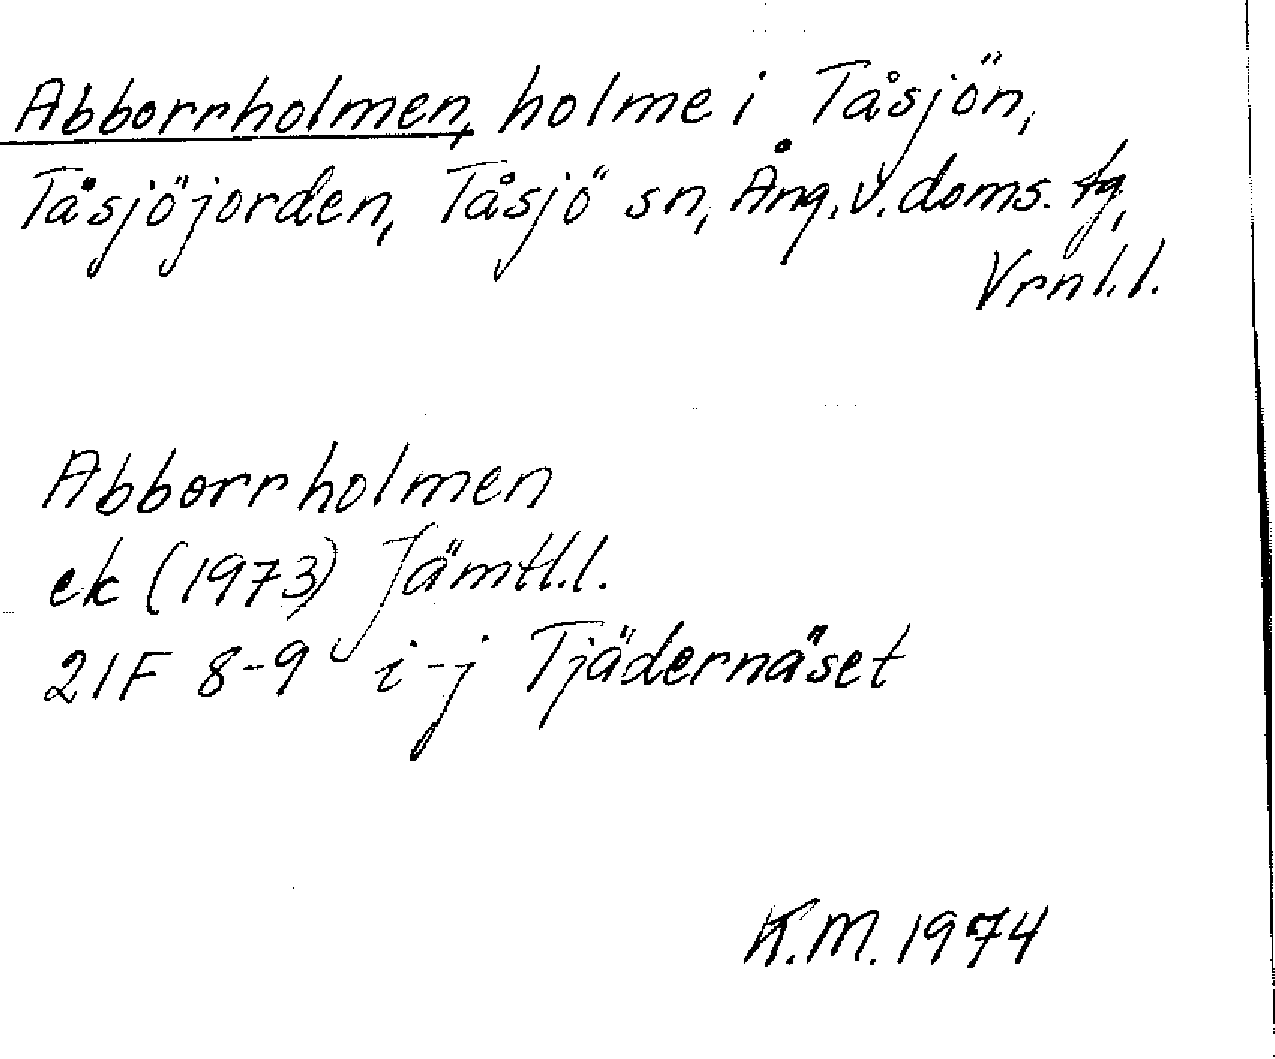 Abborrholmen, holme i Tåsjön,
Tåsjöjorden, Tåsjö sn, Ång. v. doms. tg,
Vrnl. l.
Abborrholmen
ek (1973) Jämtl. l.
21F 8-9 i-j Tjädernäset
K.M. 1974